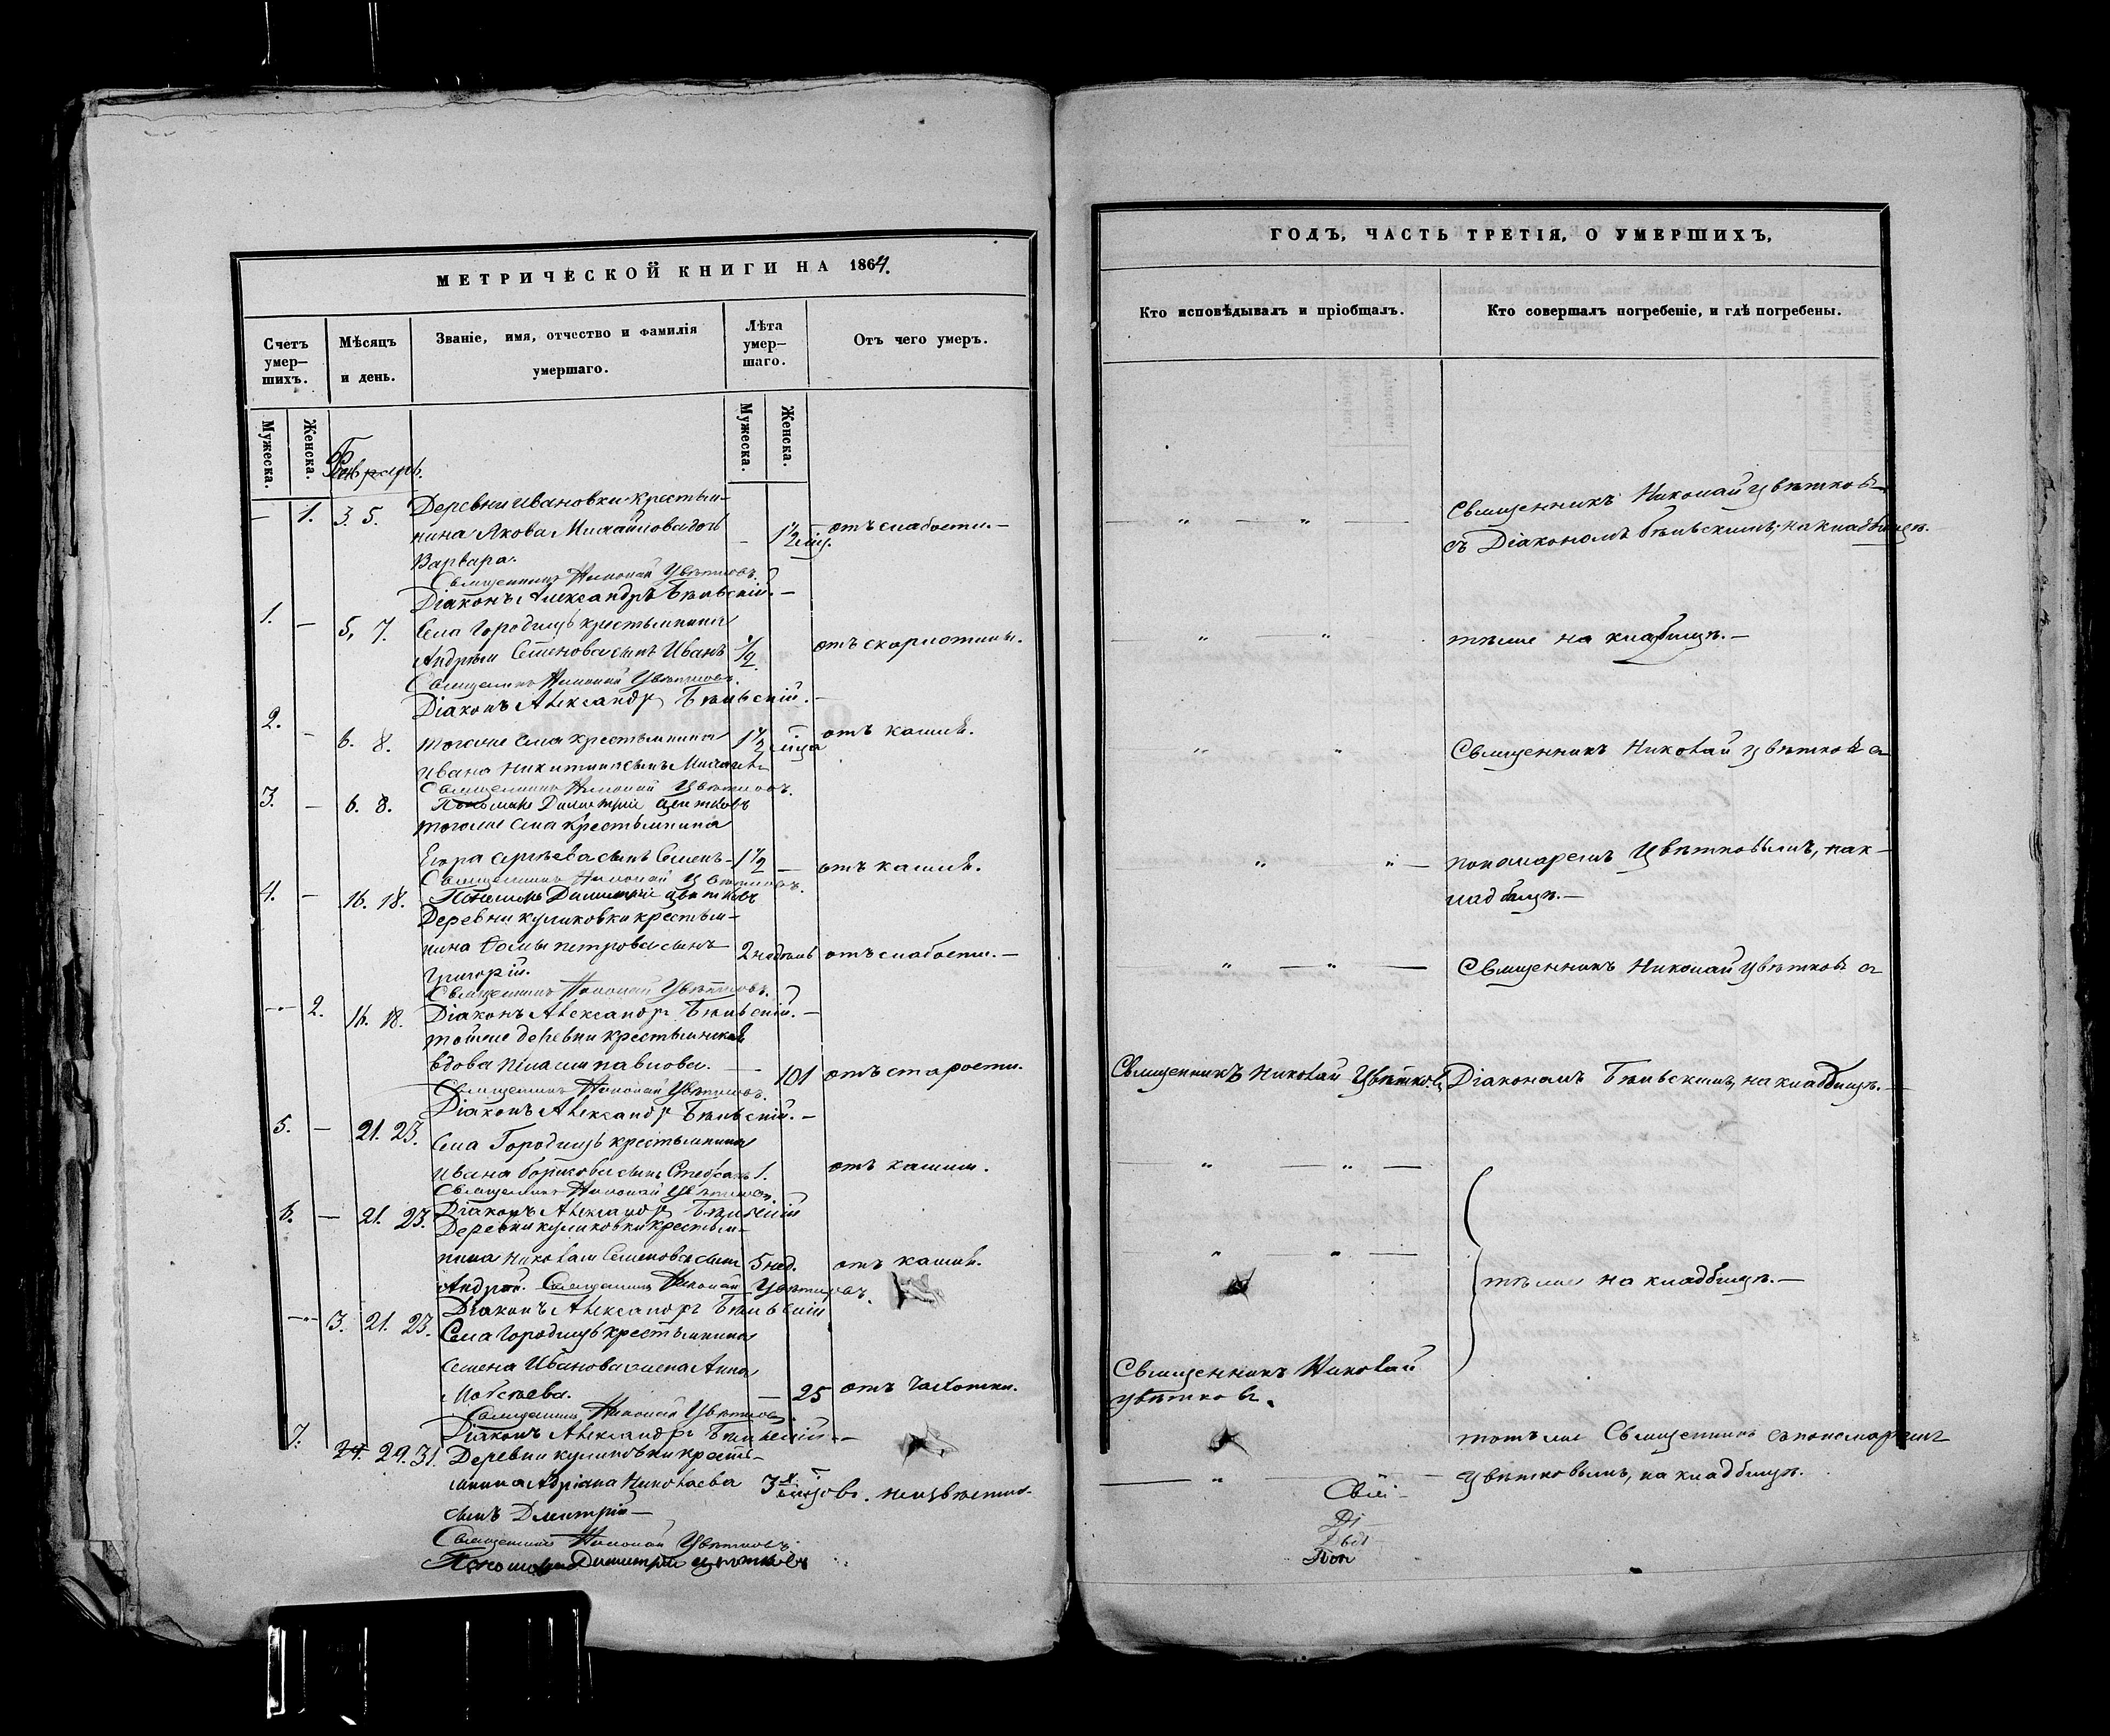 МЕТРИЧЕСКОЙ КНИГИ НА 1864.
Счетъ умер–шихъ.
Мѣсяцъ и день.
Званіе, имя, отчество и фамилія умершаго.
Лѣта умер–шаго.
Отъ чего умеръ.
Мужеска.
Женска.
Мужеска.
Женска.
— 1. 3. 5. Деревни Ивановки крестья–
нина Якова Михайлова дочь — 1½ мѣс. отъ слабости.—
Варвара.
Священникъ Николай Цвѣтковъ.
Діаконъ Александръ Бѣльскій.—
1. — 5. 7. Села Городищъ крестьянина
Андрея Семенова сынъ Иванъ ½. отъ скорлотины.
Священникъ Николай Цвѣтковъ.
Діаконъ Александръ Бѣльскій.—
2. — 6. 8. тогоже села крестьянина 1½ мѣца отъ кашля.
Ивана Никитина сынъ Михаилъ
Священникъ Николай Цвѣтковъ.
Пономарь Димитрій Цвѣтковъ
3. — 6. 8. тогоже села крестьянина
Егора Сергѣева сынъ Семенъ 1½ — отъ кашля.
Священникъ Николай Цвѣтковъ.
Пономарь Димитрій Цвѣтковъ
4. — 16. 18. Деревни Куликовки крестья–
нина Петрова сынъ 2 недѣль отъ слабости.—
Григорій.
Священникъ Николай Цвѣтковъ.
Діаконъ Александръ Бѣльскій.—
— 2. 16. 18. тойже деревни крестьянская
вдова Павлова. — 101 отъ старости.
Священникъ Николай Цвѣтковъ.
Діаконъ Александръ Бѣльскій.—
5. — 21. 23. Села Городищъ крестьянина
Ивана Борисова сынъ Стефанъ 1. отъ кашля.
Священникъ Николай Цвѣтковъ.
Діаконъ Александръ Бѣльскій
6. — 21. 23. Деревни Куликовки крестья–
нина Николая Семенова сынъ 5 нед. отъ кашля.
Андрей. Священникъ Николай Цвѣтковъ.
Діаконъ Александръ Бѣльскій
— 3. 21. 23. Села Городищъ крестьянина
Семена Иванова жена Анна
Мовсеева. — 25 отъ чахотки.
Священникъ Николай Цвѣтковъ.
Діаконъ Александръ Бѣльскій.—
7. 29. 31. Деревни Куликовки кресть–
янина Адріана Николаева 3х
сынъ Дмитрій—
Священникъ Николай Цвѣтковъ
Пономарь Димитрій Цвѣтковъ
ГОДЪ, ЧАСТЬ ТРЕТІЯ, О УМЕРШИХЪ,
Кто исповѣдывалъ и пріобщалъ.
Кто совершалъ погребеніе, и гдѣ погребены.
Священникъ Николай Цвѣтковъ
— „ — „ — съ Діакономъ Бѣльскимъ, на кладбищѣ.
— „ — „ тѣже на кладбищѣ.—
„ „ Священникъ Николай Цвѣтковъ съ
„ „ — пономаремъ Цвѣтковымъ, на к–
ладбищѣ.—
„ — „ — Священникъ Николай Цвѣтковъ съ
Священникъ Николай Цвѣтковъ Діакономъ Бѣльскимъ, на кладбищѣ.—
— „ — „ —
„ „ —
тѣже на кладбищѣ.—
Священникъ Николай
Цвѣтковъ.
тотъже Священникъ съ пономаремъ
— „ — Цвѣтковымъ, на кладбищѣ.
Пон